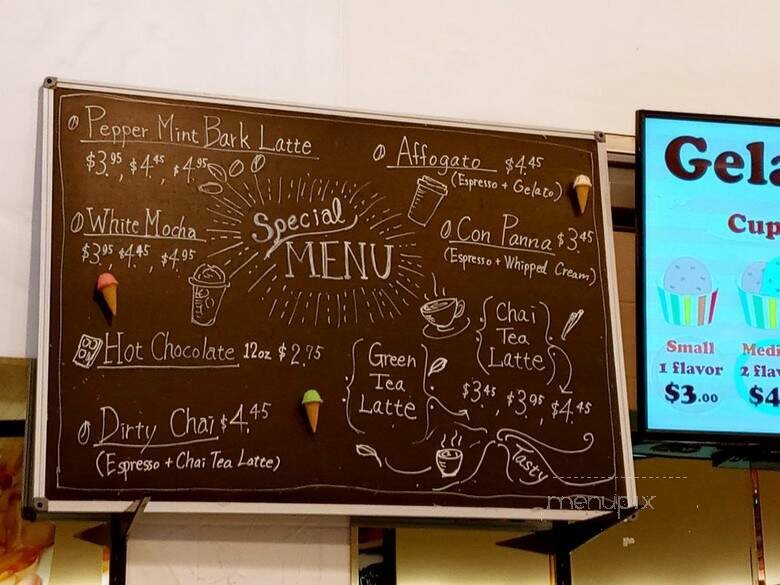 Pepper Mint Bark Latte
$3.95, $4.45, $4.95
White Mocha
$3.95 $4.45, $4.95
Special
MENU
Hot Chocolate 12oz $2.75
Dirty Chai $4.45
(Espresso + Chai Tea Latte)
Affogato $4.45
(Espresso + Gelato)
Con Panna $3.45
(Espresso + Whipped Cream)
Chai
Tea
Latte
Green
Tea
Latte
$3.45, $3.95, $4.45
Tasty
menupix
Gela
Cup
Small
1 flavor
$3.00
Medi
2 fla
$4